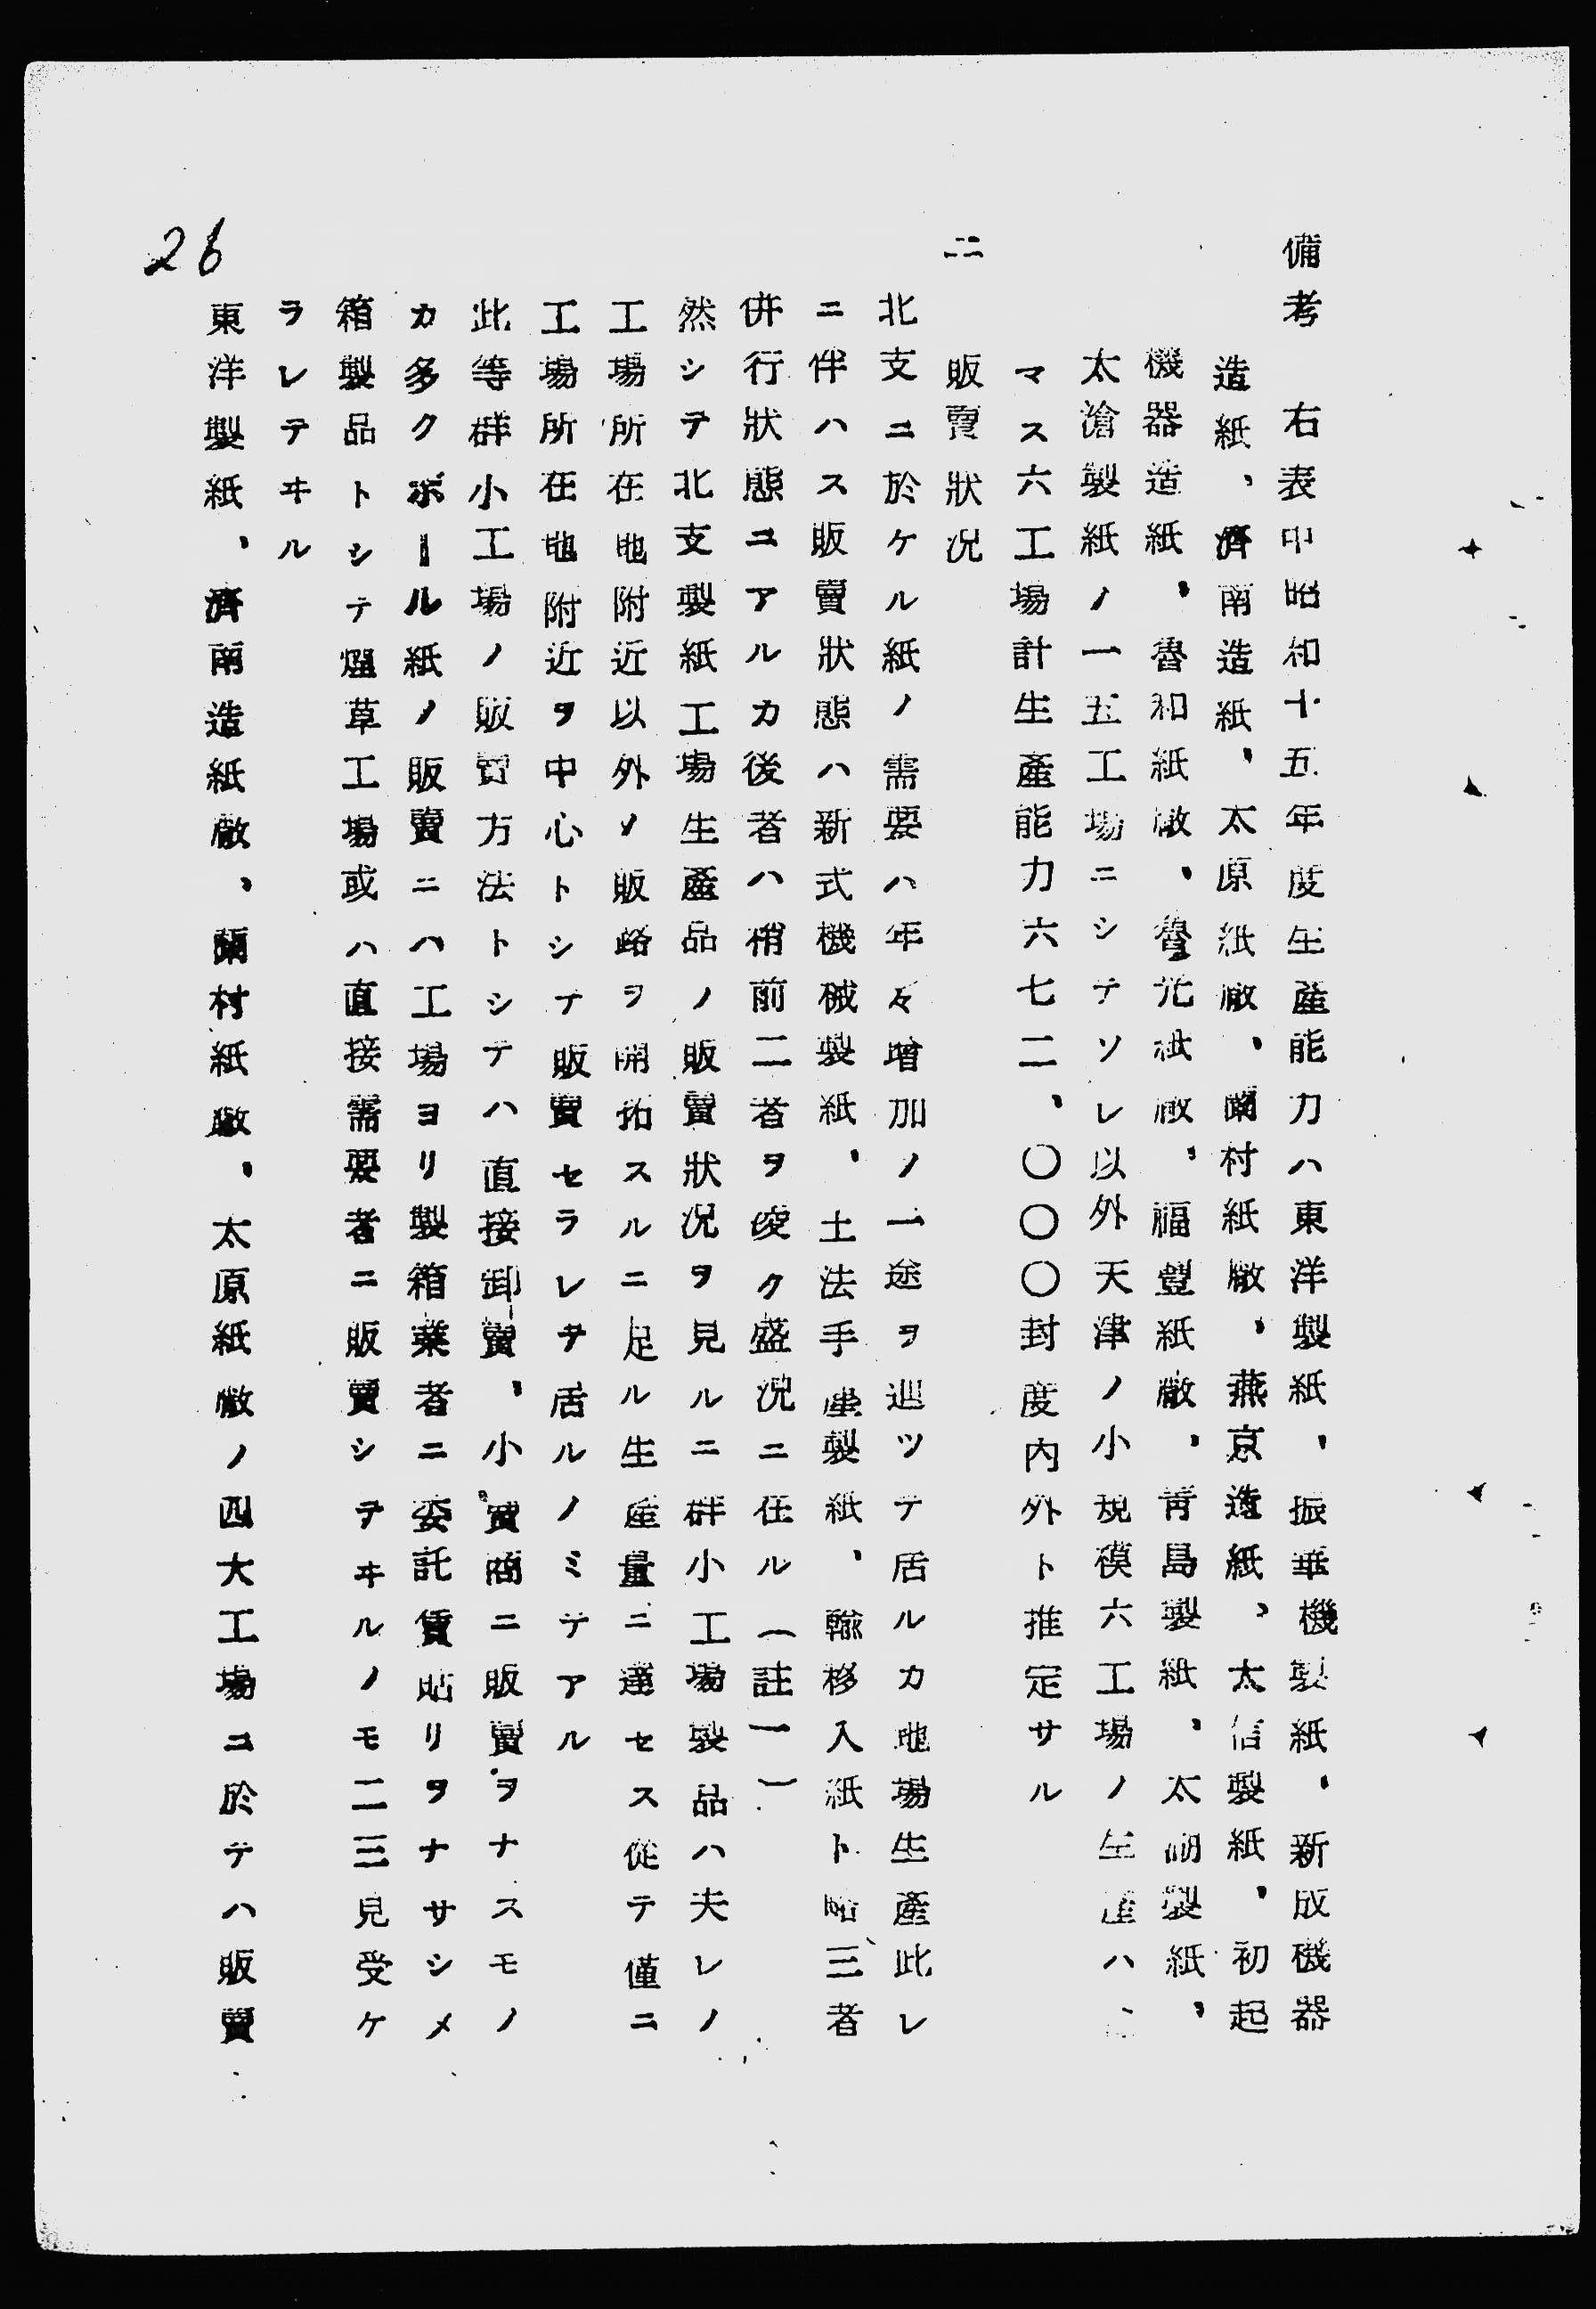 備考　右表中昭和十五年度生産能力ハ東洋製紙、振華機製紙、新成機器
造紙、濟南造紙、太原紙廠、蘭村紙廠、燕京造紙、太信製紙、初起
機器造紙、魯和紙廠、魯元紙廠、福豐紙廠、青島製紙、太湖製紙、
太滄製紙ノ一五工場ニシテソレ以外天津ノ小規模六工場ノ生産ハ
マス六工場計生産能力六七二、〇〇〇封度内外ト推定サル
二　販賣狀況
北支ニ於ケル紙ノ需要ハ年々增加ノ一途ヲ辿ツテ居ルカ地場生産此レ
ニ伴ハス販賣狀態ハ新式機械製紙、土法手漉製紙、輸移入紙ト略三者
併行狀態ニアルカ後者ハ稍前二者ヲ凌ク盛況ニ在ル（註一）
然シテ北支製紙工場生産品ノ販賣狀況ヲ見ルニ群小工場製品ハ夫レノ
工場所在地附近以外ノ販路ヲ開拓スルニ足ル生産量ニ達セス從テ僅ニ
工場所在地附近ヲ中心トシテ販賣セラレテ居ルノミテアル
此等群小工場ノ販賣方法トシテハ直接卸賣、小賣商ニ販賣ヲナスモノ
カ多クボール紙ノ販賣ニハ工場ヨリ製箱業者ニ委託賃貼リヲナサシメ
箱製品トシテ煙草工場或ハ直接需要者ニ販賣シヲヰルノモ二三見受ケ
ラレテヰル
東洋製紙、濟南造紙廠、蘭村紙廠、太原紙廠ノ四大工場ニ於テハ販賣
26